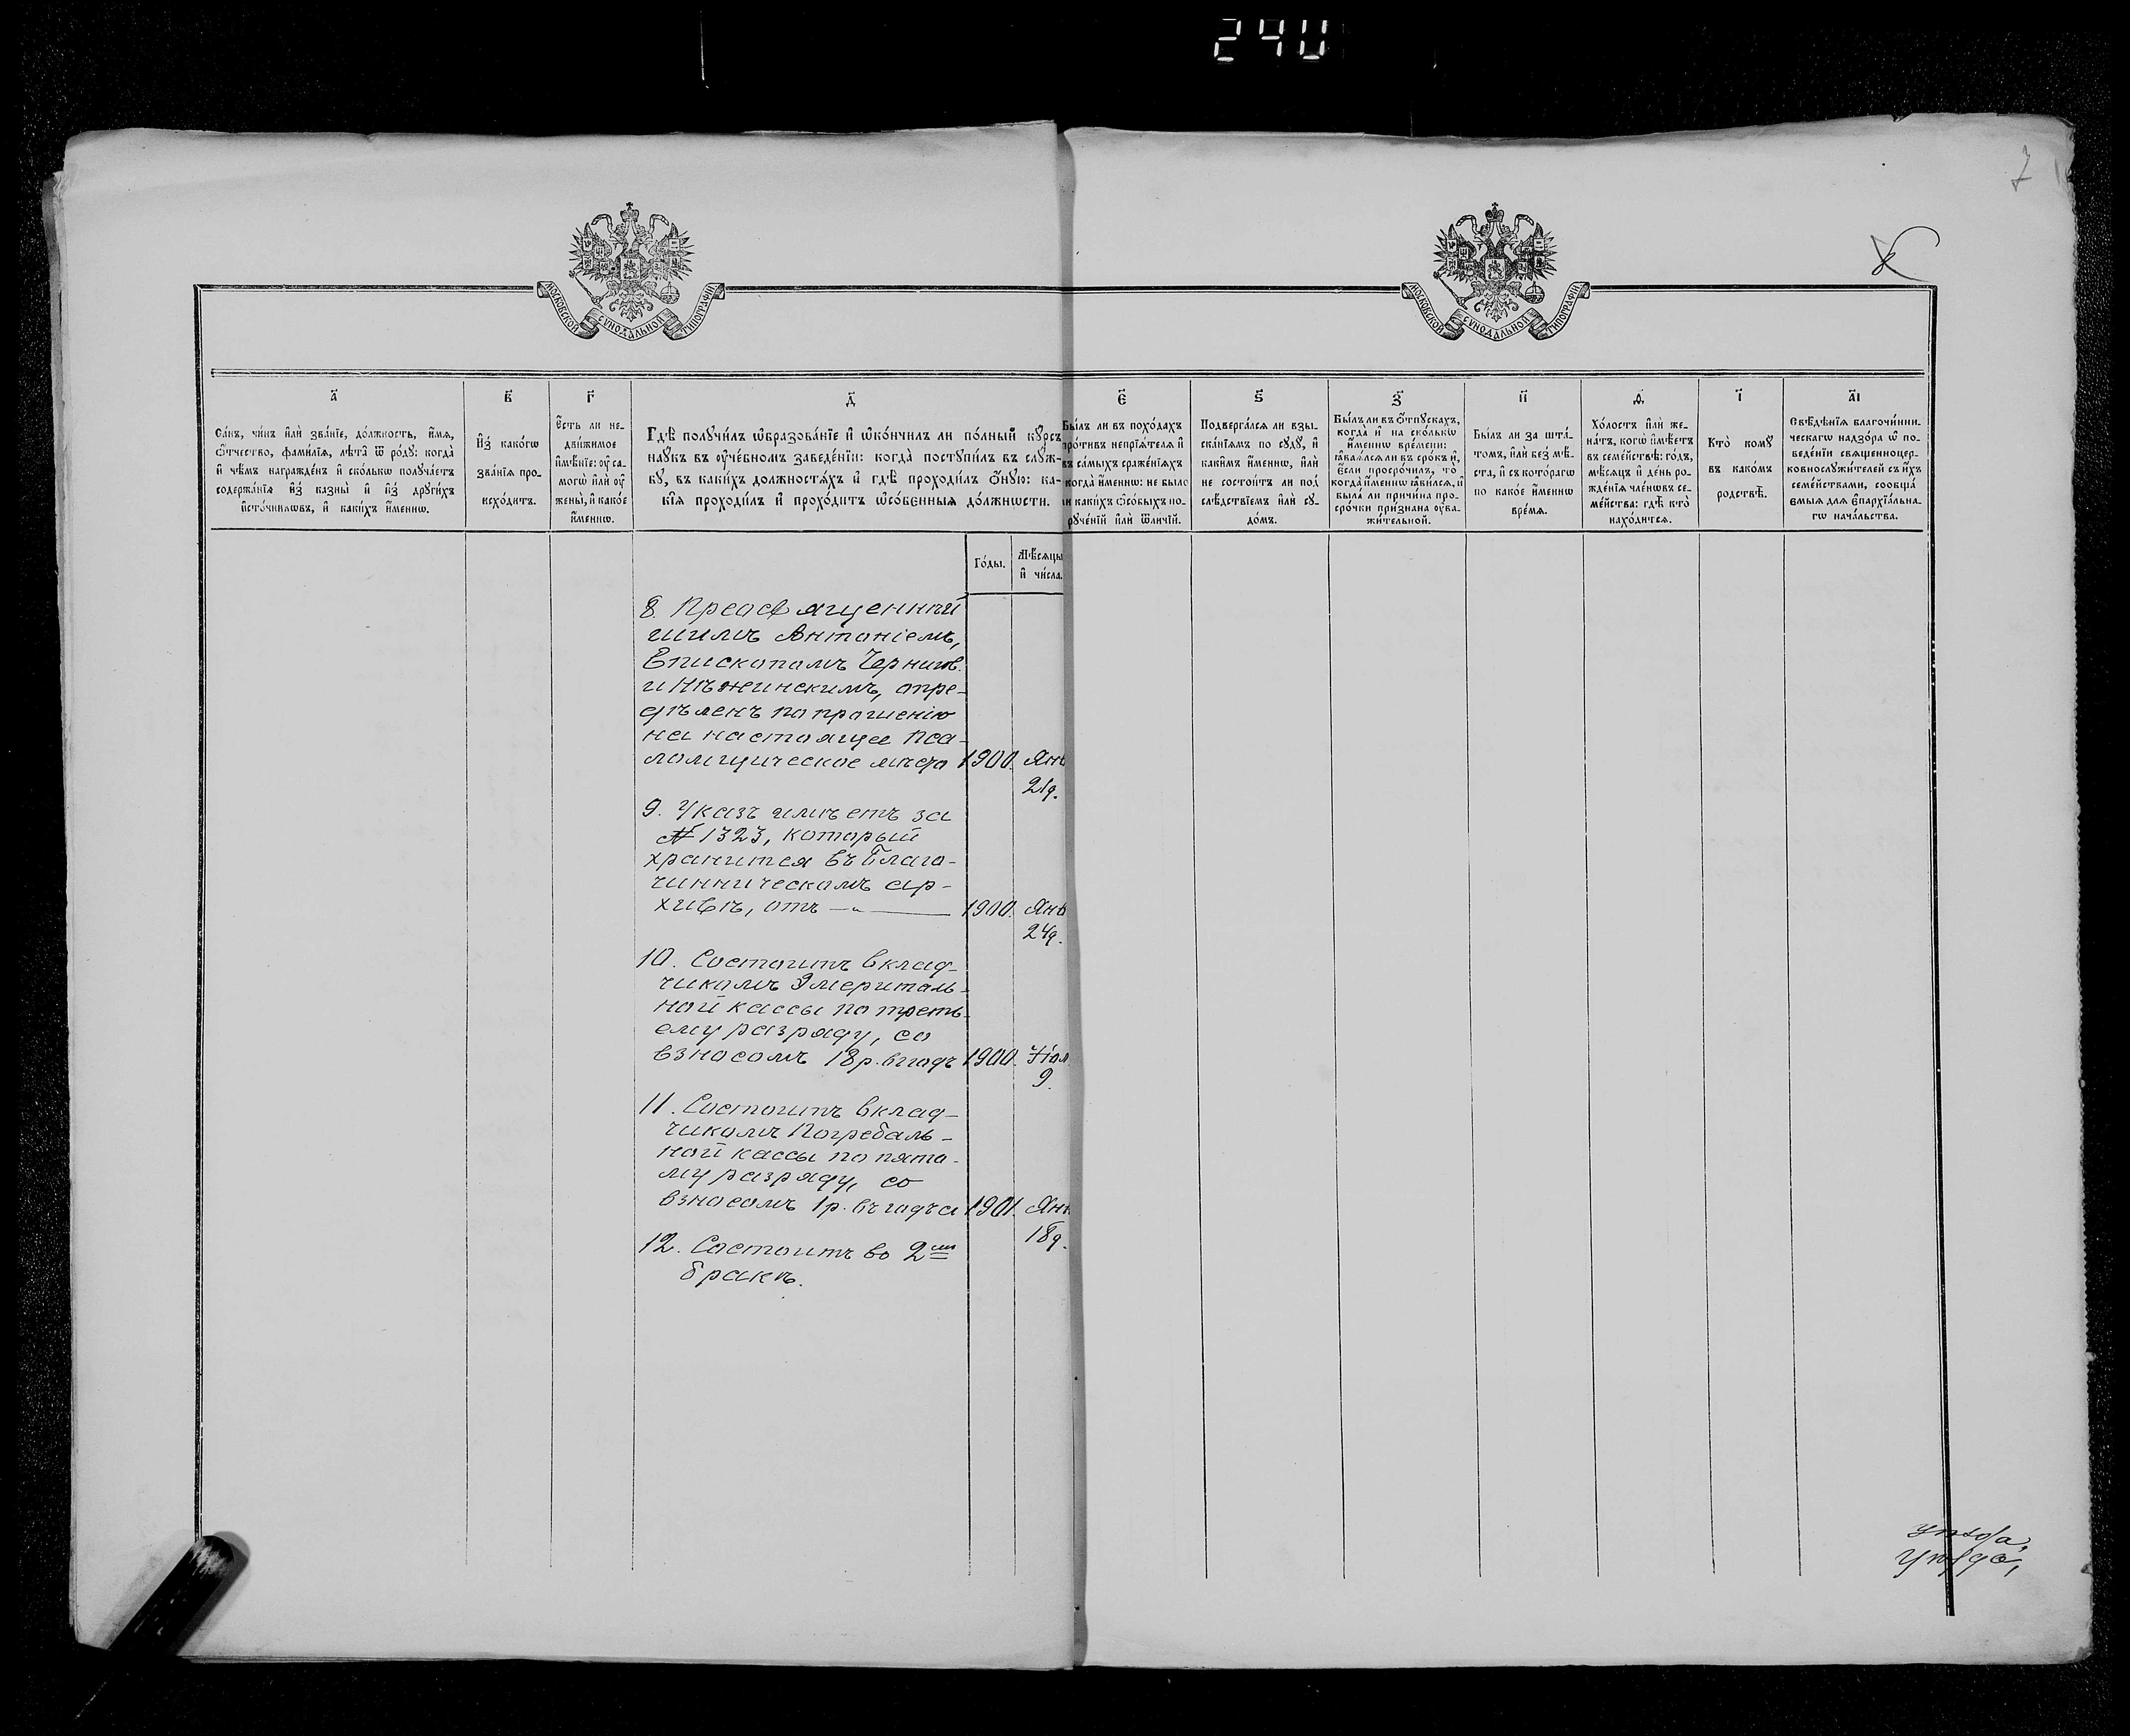 240
7
МОСКОВСКОЙ СѴНОДАЛЬНОЙ ТИПОГРАФІИ
МОСКОВСКОЙ СѴНОДАЛЬНОЙ ТИПОГРАФІИ
а҃
Са́нъ, чи́нъ и҆лѝ зва́нїе, до́лжность, и҆́мѧ,
ѻ҆́тчество, фами́лїѧ, лѣ́та ѿ ро́дꙋ: когда̀
и҆ чѣ́мъ награжде́нъ и҆ ско́лькѡ полꙋча́етъ
содержа́нїѧ и҆з̾ казны̀ и҆ и҆з̾ дрꙋги́хъ
и҆сто́чникѡвъ, и҆ каки́хъ и҆́меннѡ.
в҃
И҆з̾ како́гѡ
зва́нїѧ про-
исхо́дитъ.
г҃
Є҆́сть ли не-
дви́жимое
и҆мѣ́нїе: ᲂу҆ са-
могѡ̀ и҆лѝ ᲂу҆
жены̀, и҆ како́е
и҆́меннѡ.
д҃
Гдѣ̀ полꙋчи́лъ ѡ҆бразова́нїе и҆ ѡ҆ко́нчилъ ли по́лный кꙋ́рсъ
наꙋ́къ въ ᲂу҆че́бномъ заведе́нїи: когда̀ постꙋпи́лъ въ слꙋ́ж-
бꙋ, въ каки́хъ до́лжностѧхъ и҆ гдѣ̀ проходи́лъ ѻ҆́нꙋю: ка-
кі́ѧ проходи́лъ и҆ прохо́дитъ ѡ҆со́бєнныѧ до́лжнѡсти.
Го́ды.
Мѣ́сѧцы
и҆ чи́сла.
є҃
Бы́лъ ли въ похо́дахъ
про́тивъ непрїѧ́телѧ и҆
въ са́мыхъ сраже́нїѧхъ
когда̀ и҆́меннѡ: не было
ли каки́хъ ѻ҆со́быхъ по-
рꙋче́нїй и҆лѝ ѿли́чїй.
ѕ҃
Подверга́лсѧ ли взы-
ска́нїѧмъ по сꙋдꙋ̀, и҆
каки̑мъ и҆́меннѡ, и҆лѝ
не состои́тъ ли под̾
слѣ́дствїемъ и҆лѝ сꙋ-
до́мъ.
з҃
Бы́лъ ли въ ѻ҆́тпꙋскахъ,
когда̀ и҆ на ско́лькѡ
и҆́меннѡ вре́мени:
ꙗ҆влѧ́лсѧ ли въ сро́къ и҆,
є҆́сли просро́чилъ, то̀
когда̀ и҆́меннѡ ꙗ҆ви́лсѧ, и҆
была̀ ли причи́на про-
сро́чки при́знана ᲂу҆ва-
жи́тельной.
и҃
Бы́лъ ли за шта́-
томъ, и҆лѝ без̾ мѣ́-
ста, и҆ съ кото́рагѡ
по како́е и҆́меннѡ
вре́мѧ.
ѳ҃
Хо́лостъ и҆лѝ же-
на́тъ, когѡ̀ и҆мѣ́етъ
въ семе́йствѣ: го́дъ,
мѣ́сѧцъ и҆ де́нь ро-
жде́нїѧ чле́нѡвъ се-
ме́йства: гдѣ̀ кто̀
нахо́дитсѧ.
і҃
Кто̀ комꙋ̀
въ како́мъ
родствѣ̀.
а҃і
Свѣ́дѣнїѧ благочи́нни-
ческагѡ надзо́ра ѡ҆ по-
веде́нїи свѧщенноцер-
ковнослꙋжи́телей съ и҆́хъ
семе́йствами, сообща́
ємыѧ для є҆пархїа́льна-
гѡ нача́льства.
8. Преосвященнѣй
шимъ Антоніемъ,
Епископомъ Чернигов.
и Нѣжинскимъ, опре-
дѣленъ по прошенію
на настоящее пса-
ломщическое мѣсто 1900. Янв
21д.
9. Указъ имѣетъ за
№ 1323, который
хранится въ Благо-
чинническомъ ар-
хивѣ, отъ —„— 1900. Янв
24д.
10. Состоитъ вклад-
чикомъ Эмериталь-
ной кассы по треть-
ему разряду, со
взносомъ 18 р. вгодъ 1900. Іюл
9.
11. Состоитъ вклад-
чикомъ Погребаль-
ной кассы по пято-
му разряду, со
взносомъ 1 р. въ годъ съ 1901. Янв
18д.
12. Состоитъ во 2мъ
бракѣ.